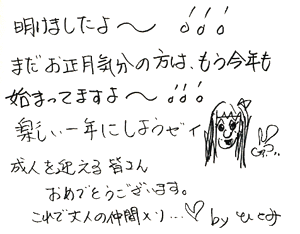 明けましたよ〜!!!
まだお正月気分の方は、もう今年も
始まってますよ〜!!!
楽しい一年にしようゼィ
成人を迎える皆さん
おめでとうございます。
これで大人の仲間メソ...♡ by ひとみ